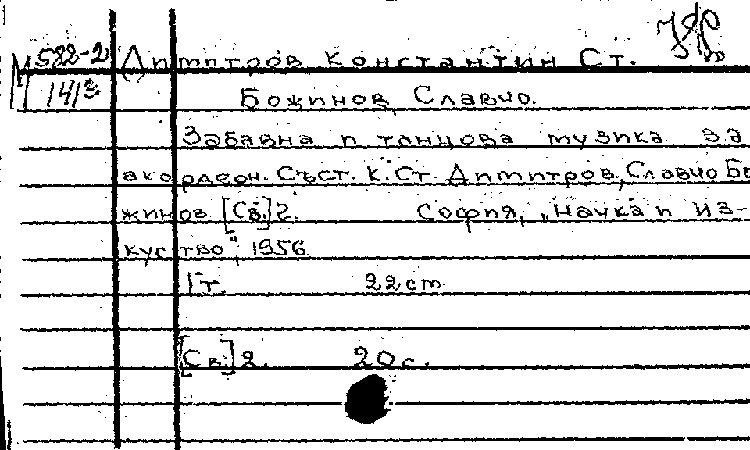 М 522-2 Димитров Константин Ст.
1413 Божинов, Славчо.
Забавна и танцова музика за
акордеон. Съст. К. Ст. Димитров, Славчо Бо-
жинов [Св.] 2. София, „Наука и из-
куство", 1956
1 т. 22 cm
[Св.] 2. 20 с.